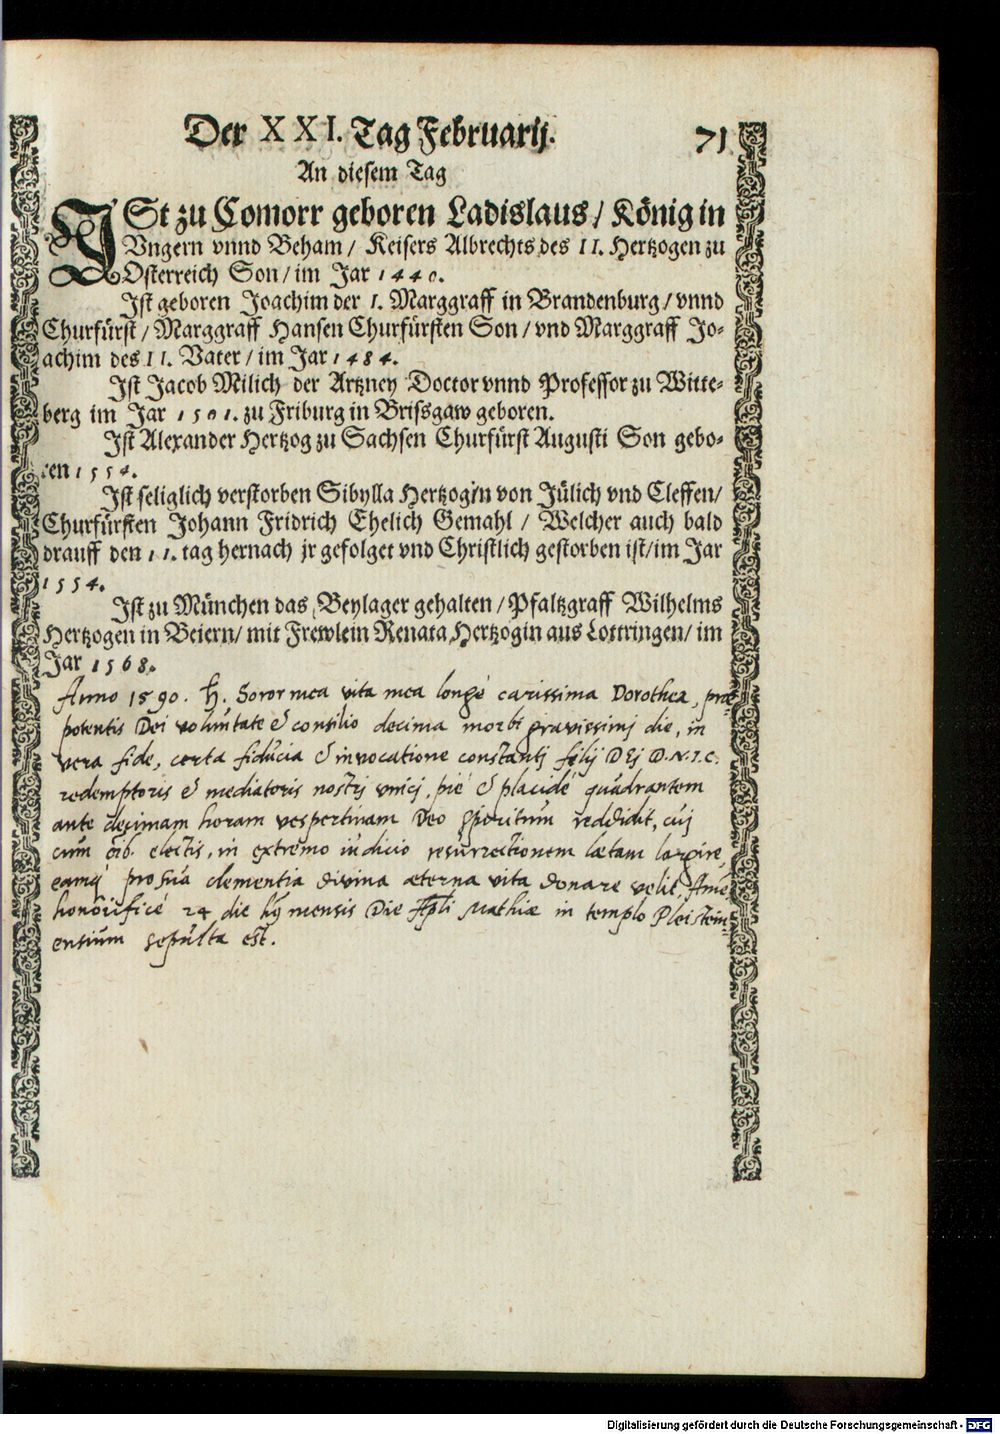 Der XXI. Tag Februarij. 71
An diesem Tag
ISt zu Comorr geboren Ladislaus / König in
Vngern vnnd Beham / Keisers Albrechts des II. Hertzogen zu
Osterreich Son / im Jar 1440.
Ist geboren Joachim der I. Marggraff in Brandenburg / vnnd
Churfürst / Marggraff Hansen Churfürsten Son / vnd Marggraff Jo-
achim des II. Vater / im Jar 1484.
Ist Jacob Milich der Artzney Doctor vnnd Professor zu Witte-
berg im Jar 1501. zu Friburg in Brissgaw geboren.
Ist Alexander Hertzog zu Sachsen Churfürst Augusti Son gebo-
ren 1554.
Ist seliglich verstorben Sibylla Hertzogin von Jülich vnd Cleffen /
Churfürsten Johann Fridrich Ehelich Gemahl / Welcher auch bald
drauff den 11. tag hernach jr gefolget vnd Christlich gestorben ist / im Jar
1554.
Ist zu München das Beylager gehalten / Pfaltzgraff Wilhelms
Hertzogen in Beiern / mit Frewlein Renata Hertzogin aus Lottringen / im
Jar 1568.
Anno 1590. H. Soror mea vita mea longè carissima Dorothea, præ-
potentis Dei voluntate & consilio decima morbi gravissimj die, in
vera fide, certa fiducia & invocatione constantj filij Dej D.N.I.C.
redemptoris & mediatoris nostrj vnicj, piè & placidè quadrantem
ante decimam horam vespertinam Deo spiritum reddidit, cuj
cum oib. electis, in extremo iudicio resurrectionem lætam largire,
eamq́ pro sua clementia divina æterna vita donare velit, Amē
honorificè 24 die hq mensis Die Apli Mathiæ in templo Pleistein-
ensium sepulta est.
Digitalisierung gefördert durch die Deutsche Forschungsgemeinschaft - DFG